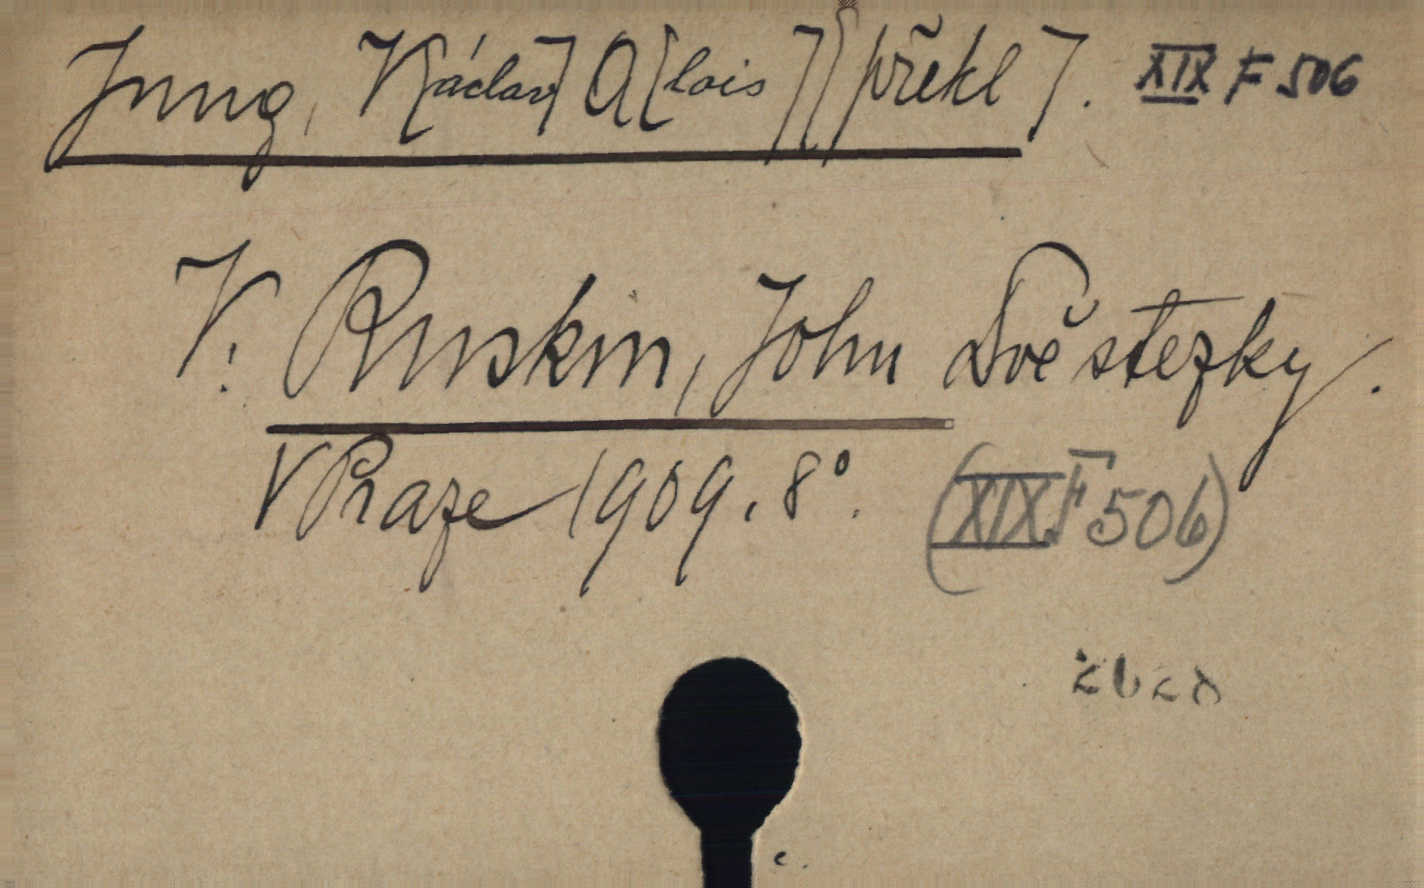 Jung, V[áclav] A[lois] [překl]. XIX F 506
V: Ruskin, John Dvě stezky.
V Praze 1909. 8°. (XIX.F 506)
c.